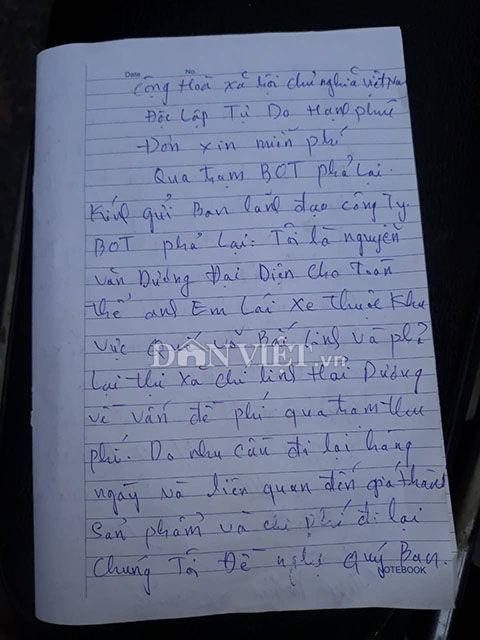 Date No
Cộng Hoà xã hội chủ nghĩa việt Nam
Độc Lập Tự Do Hạnh phúc
Đơn xin miễn phí
Qua trạm BOT phả Lại
Kính gửi Ban lãnh đạo công Ty
BOT phả Lại: Tôi là nguyễn
văn Dương Đại Diện cho toàn
thể anh Em Lái xe thuộc khu
vực Quế võ Bắc Ninh và phả
DÂNVIỆT.vn
Lại thị xã chí linh Hải Dương
về vấn đề phí qua trạm thu
phí. Do nhu cầu đi lại hàng
ngày và liên quan đến giá thành
sản phẩm và chi phí đi lại
Chúng Tôi Đề nghị Quý Ban.
NOTEBOOK